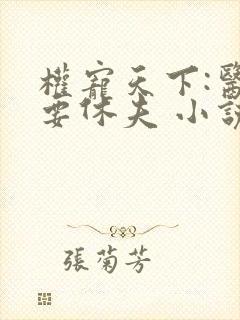 權寵天下:醫
要休夫 小說
張菊芳